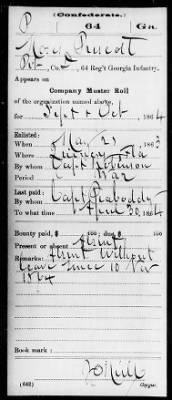 (Confederate.)
P 64 Ga.
Moses Prescott
Pvt, Co. , 64 Reg't Georgia Infantry.
Appears on
Company Muster Roll
of the organization named above,
for Sept & Oct, 1864
Enlisted:
When May 21, 1863
Where Quincy Fla
By whom Capt Robinson
Period War
Last paid:
By whom Capt Peabody
To what time April 30, 1864
Bounty paid, $ 100; due $ 100
Present or absent Absent
Remarks: Absent Without
leave since 10 Nov
1864
Book mark:
(642) Copyist.